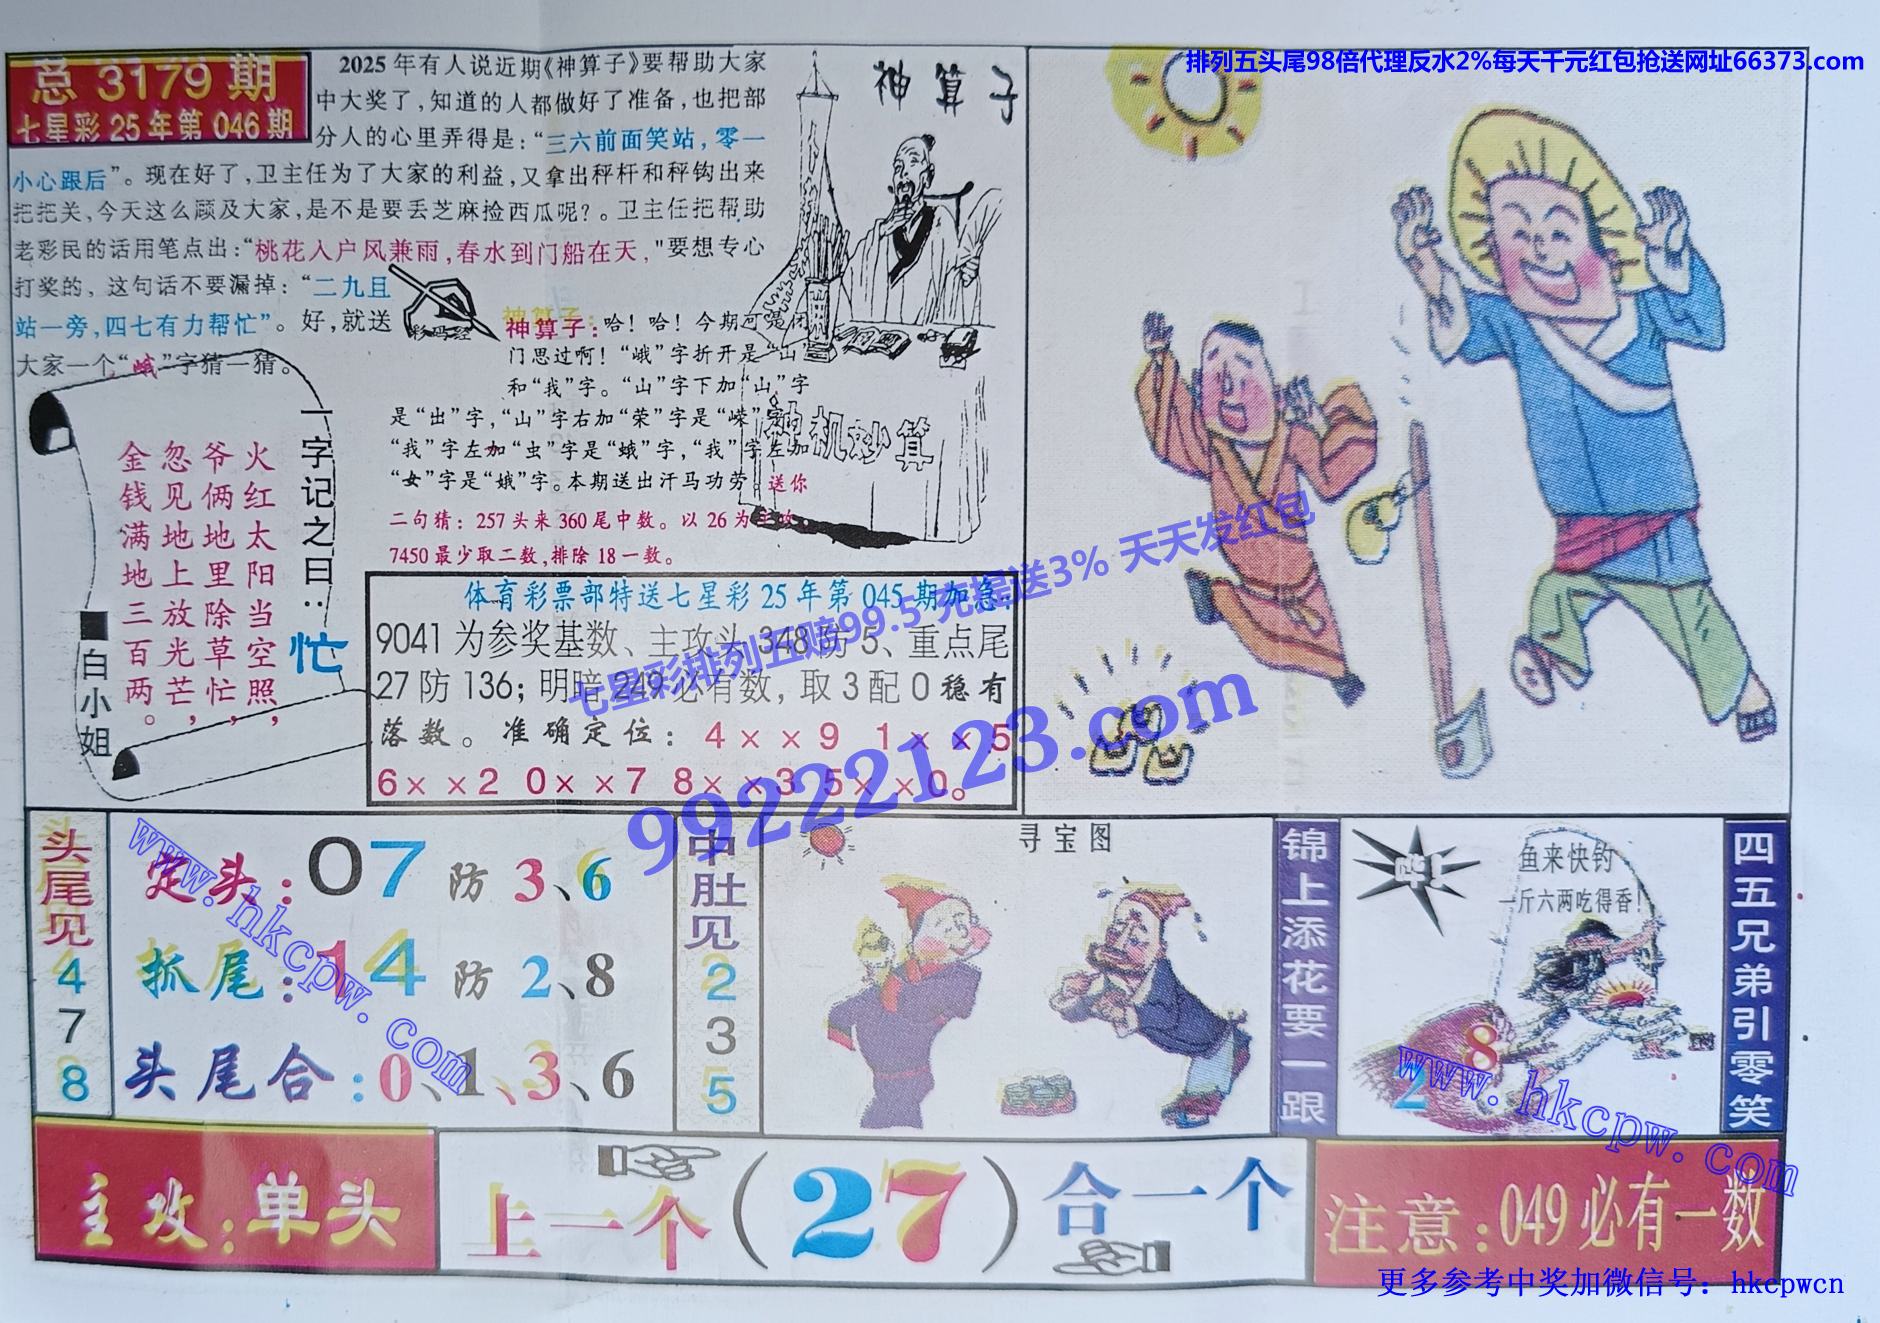 排列五头尾98倍代理反水2%每天千元红包抢送网址66373.com
总 3179 期
七星彩 25 年第 046 期
2025 年有人说近期《神算子》要帮助大家
中大奖了,知道的人都做好了准备,也把部
分人的心里弄得是:“三六前面笑站,零一
小心跟后”。现在好了,卫主任为了大家的利益,又拿出秤杆和秤钩出来
把把关、今天这么顾及大家,是不是要丢芝麻捡西瓜呢?。卫主任把帮助
老彩民的话用笔点出:“桃花入户风兼雨,春水到门船在天,"要想专心
打奖的、这句话不要漏掉:“二九且
站一旁,四七有力帮忙”。好,就送
大家一个“峨”字猜一猜。
神算子
彩码经
神算子:哈!哈!今期可是闭
门思过啊!“峨”字折开是“山”
和“我”字。“山”字下加“山”字
是“出”字,“山”字右加“荣”字是“嵘”字
“我”字左加“虫”字是“蛾”字,“我”字左加
“女”字是“娥”字。本期送出汗马功劳。送你
二句猜:257 头来 360 尾中数。以 26 为主攻
7450 最少取二数,排除 18 一数。
神机妙算
一字记之曰:忙
火红太阳当空照,
爷俩地里除草忙,
忽见地上放光芒,
金钱满地三百两。
白小姐
体育彩票部特送七星彩 25 年第 045 期加急
9041 为参奖基数、主攻头 348 防 5、重点尾
27 防 136;明暗 249 必有数,取 3 配 0 稳有
落数。准确定位:4××9 1××5
6××2 0××7 8××3 5××0。
七星彩排列五赔99.5 充提送3% 天天发红包
99222123.com
头尾见478
定头:07 防 3、6
抓尾:14 防 2、8
头尾合:0、1、3、6
www.hkcpw.com
中肚见235
寻宝图
锦上添花要一跟
鱼来快钓
一斤六两吃得香!
8
2
www.hkcpw.com
四五兄弟引零笑
主攻:单头
上一个(27)合一个
注意:049必有一数
更多参考中奖加微信号:hkcpwcn